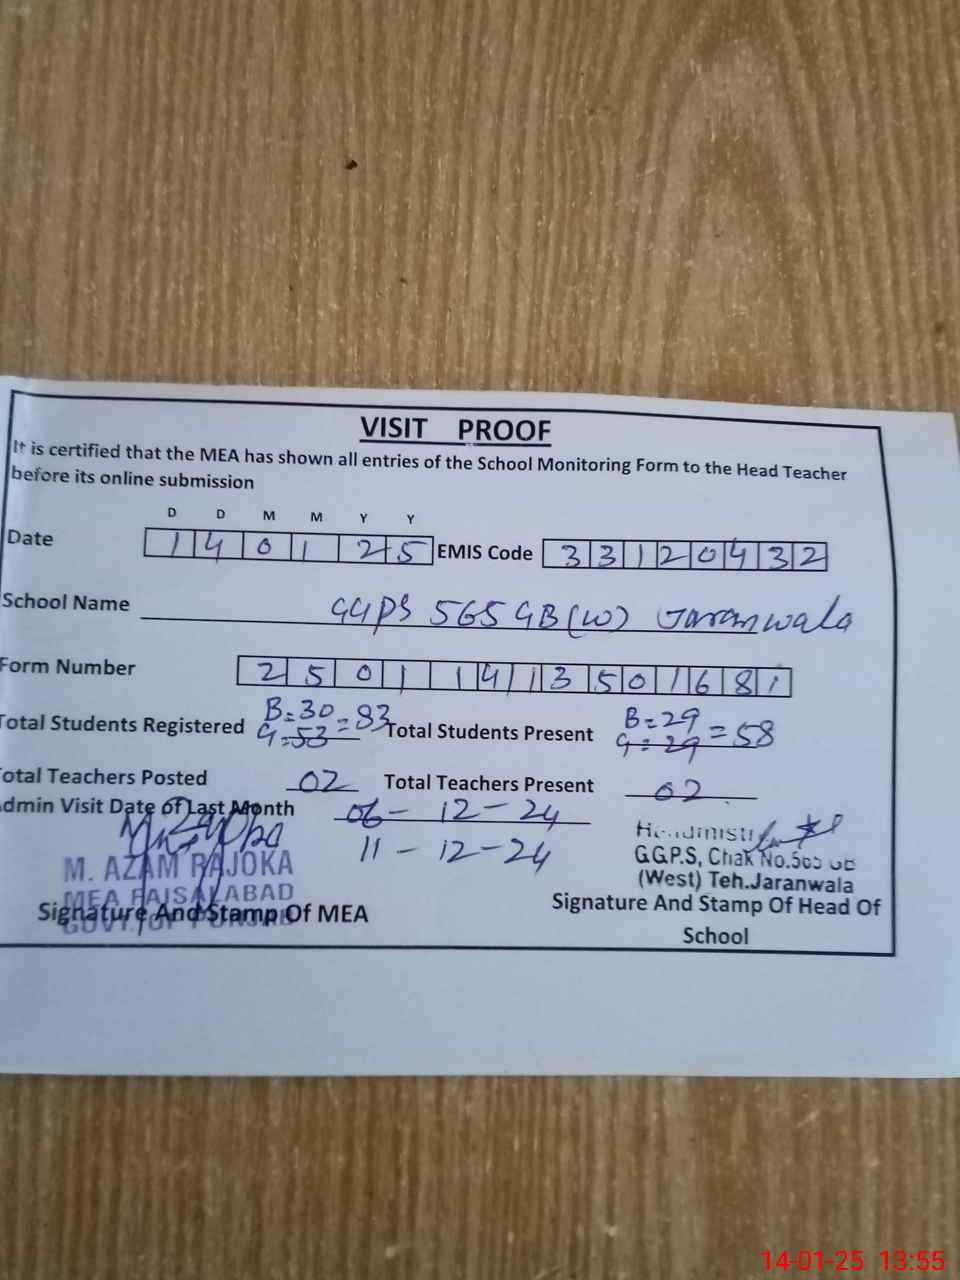 VISIT PROOF
It is certified that the MEA has shown all entries of the School Monitoring Form to the Head Teacher
before its online submission
D D M M Y Y
Date 1 4 0 1 2 5 EMIS Code 3 3 1 2 0 4 3 2
School Name GGPS 565 GB (W) Jaranwala
Form Number 2 5 0 1 1 4 1 3 5 0 1 6 8 1
Total Students Registered B=30 G=53 =83 Total Students Present B=29 G=29 =58
Total Teachers Posted 02 Total Teachers Present 02
Admin Visit Date of Last Month 06-12-24
11-12-24
M. AZAM RAJOKA
MEA FAISALABAD
GOVT. OF PUNJAB
Signature And Stamp Of MEA
G.G.P.S, Chak No.565 GB
(West) Teh.Jaranwala
Signature And Stamp Of Head Of
School
14-01-25 13:55